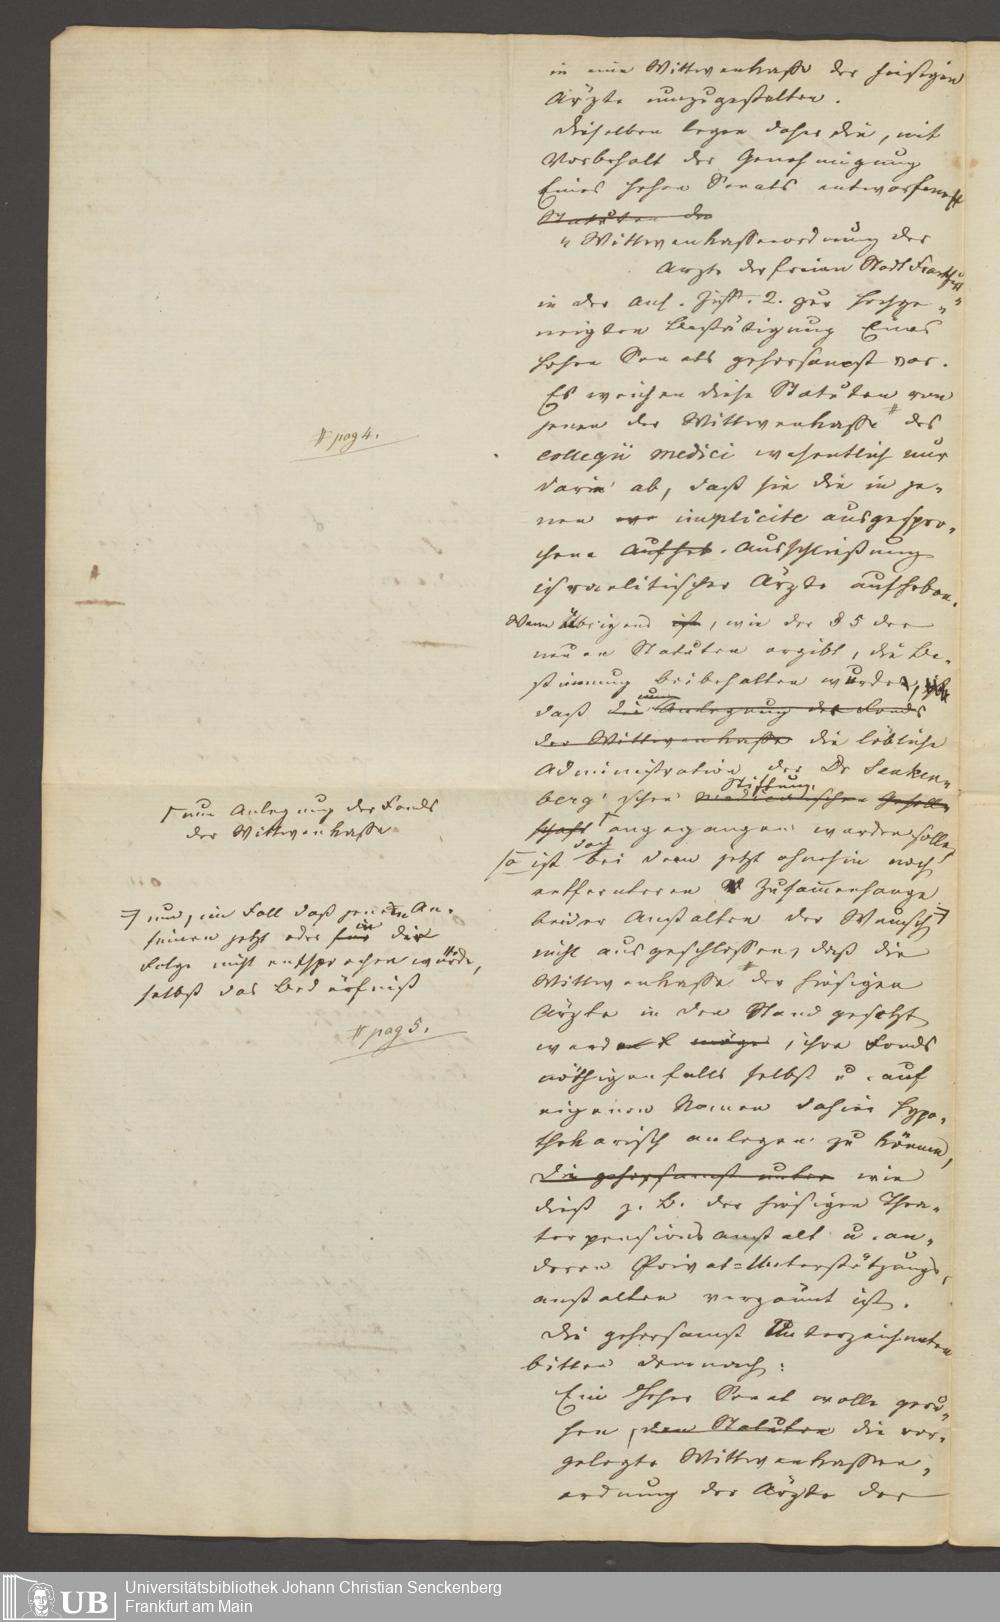 in eine Wittwenkasse der hiesigen
Ärzte umzugestalten.
Dieselben legen daher die, mit
Vorbehalt der Genehmigung
Eines hohen Senats entworfene
Statuten der
„Wittwenkassenordnung der
Ärzte der freien Stadt Frankfurt“
in der Anl. Ziff. 2. zur hochge-
neigten Bestätigung Eines
hohen Senats gehorsamst vor.
Es weichen diese Statuten von
jenen der Wittwenkasse # des
collegii medici wesentlich nur
darin ab, daß sie die in je-
nen implicite ausgespro-
chene Aufheb. Ausschließung
israelitischer Ärzte aufheben.
Wenn Übrigens ist, wie der § 5 der
neuen Statuten ergibt, die Be-
stimmung beibehalten wurde,
daß die Anlegung des Fonds
der Wittwenkasse die löbliche
Administration der Dr Senken-
berg'schen Stiftung medicinischen Gesell-
schaft angegangen werden solle,
so ist doch bei dem jetzt ohnehin noch
entfernteren Zusammenhange
beider Anstalten der Wunsch
nicht ausgeschlossen, daß die
Wittwenkasse # der hiesigen
Ärzte in den Stand gesetzt
werde möge, ihre Fonds
nöthigenfalls selbst u. auf
eigenen Namen dahier hypo-
thekarisch anlegen zu können,
die gehorsamst unter wie
dieß z. B. der hiesigen Thea-
terpensionsanstalt u. an-
deren Privat-Unterstützungs-
anstalten vergönnt ist.
Die gehorsamst Unterzeichneten
bitten demnach:
Ein Hoher Senat wolle geru-
hen, den Statuten die vor-
gelegte Wittwenkassen-
ordnung der Ärzte der
# pag 4.
um Anlegung der Fonds
der Wittwenkasse
nur, im Fall daß jene dem An-
sinnen jetzt oder für in der
Folge nicht entsprechen würde,
selbst das Bedürfniß
# pag 5.
Universitätsbibliothek Johann Christian Senckenberg
Frankfurt am Main
UB